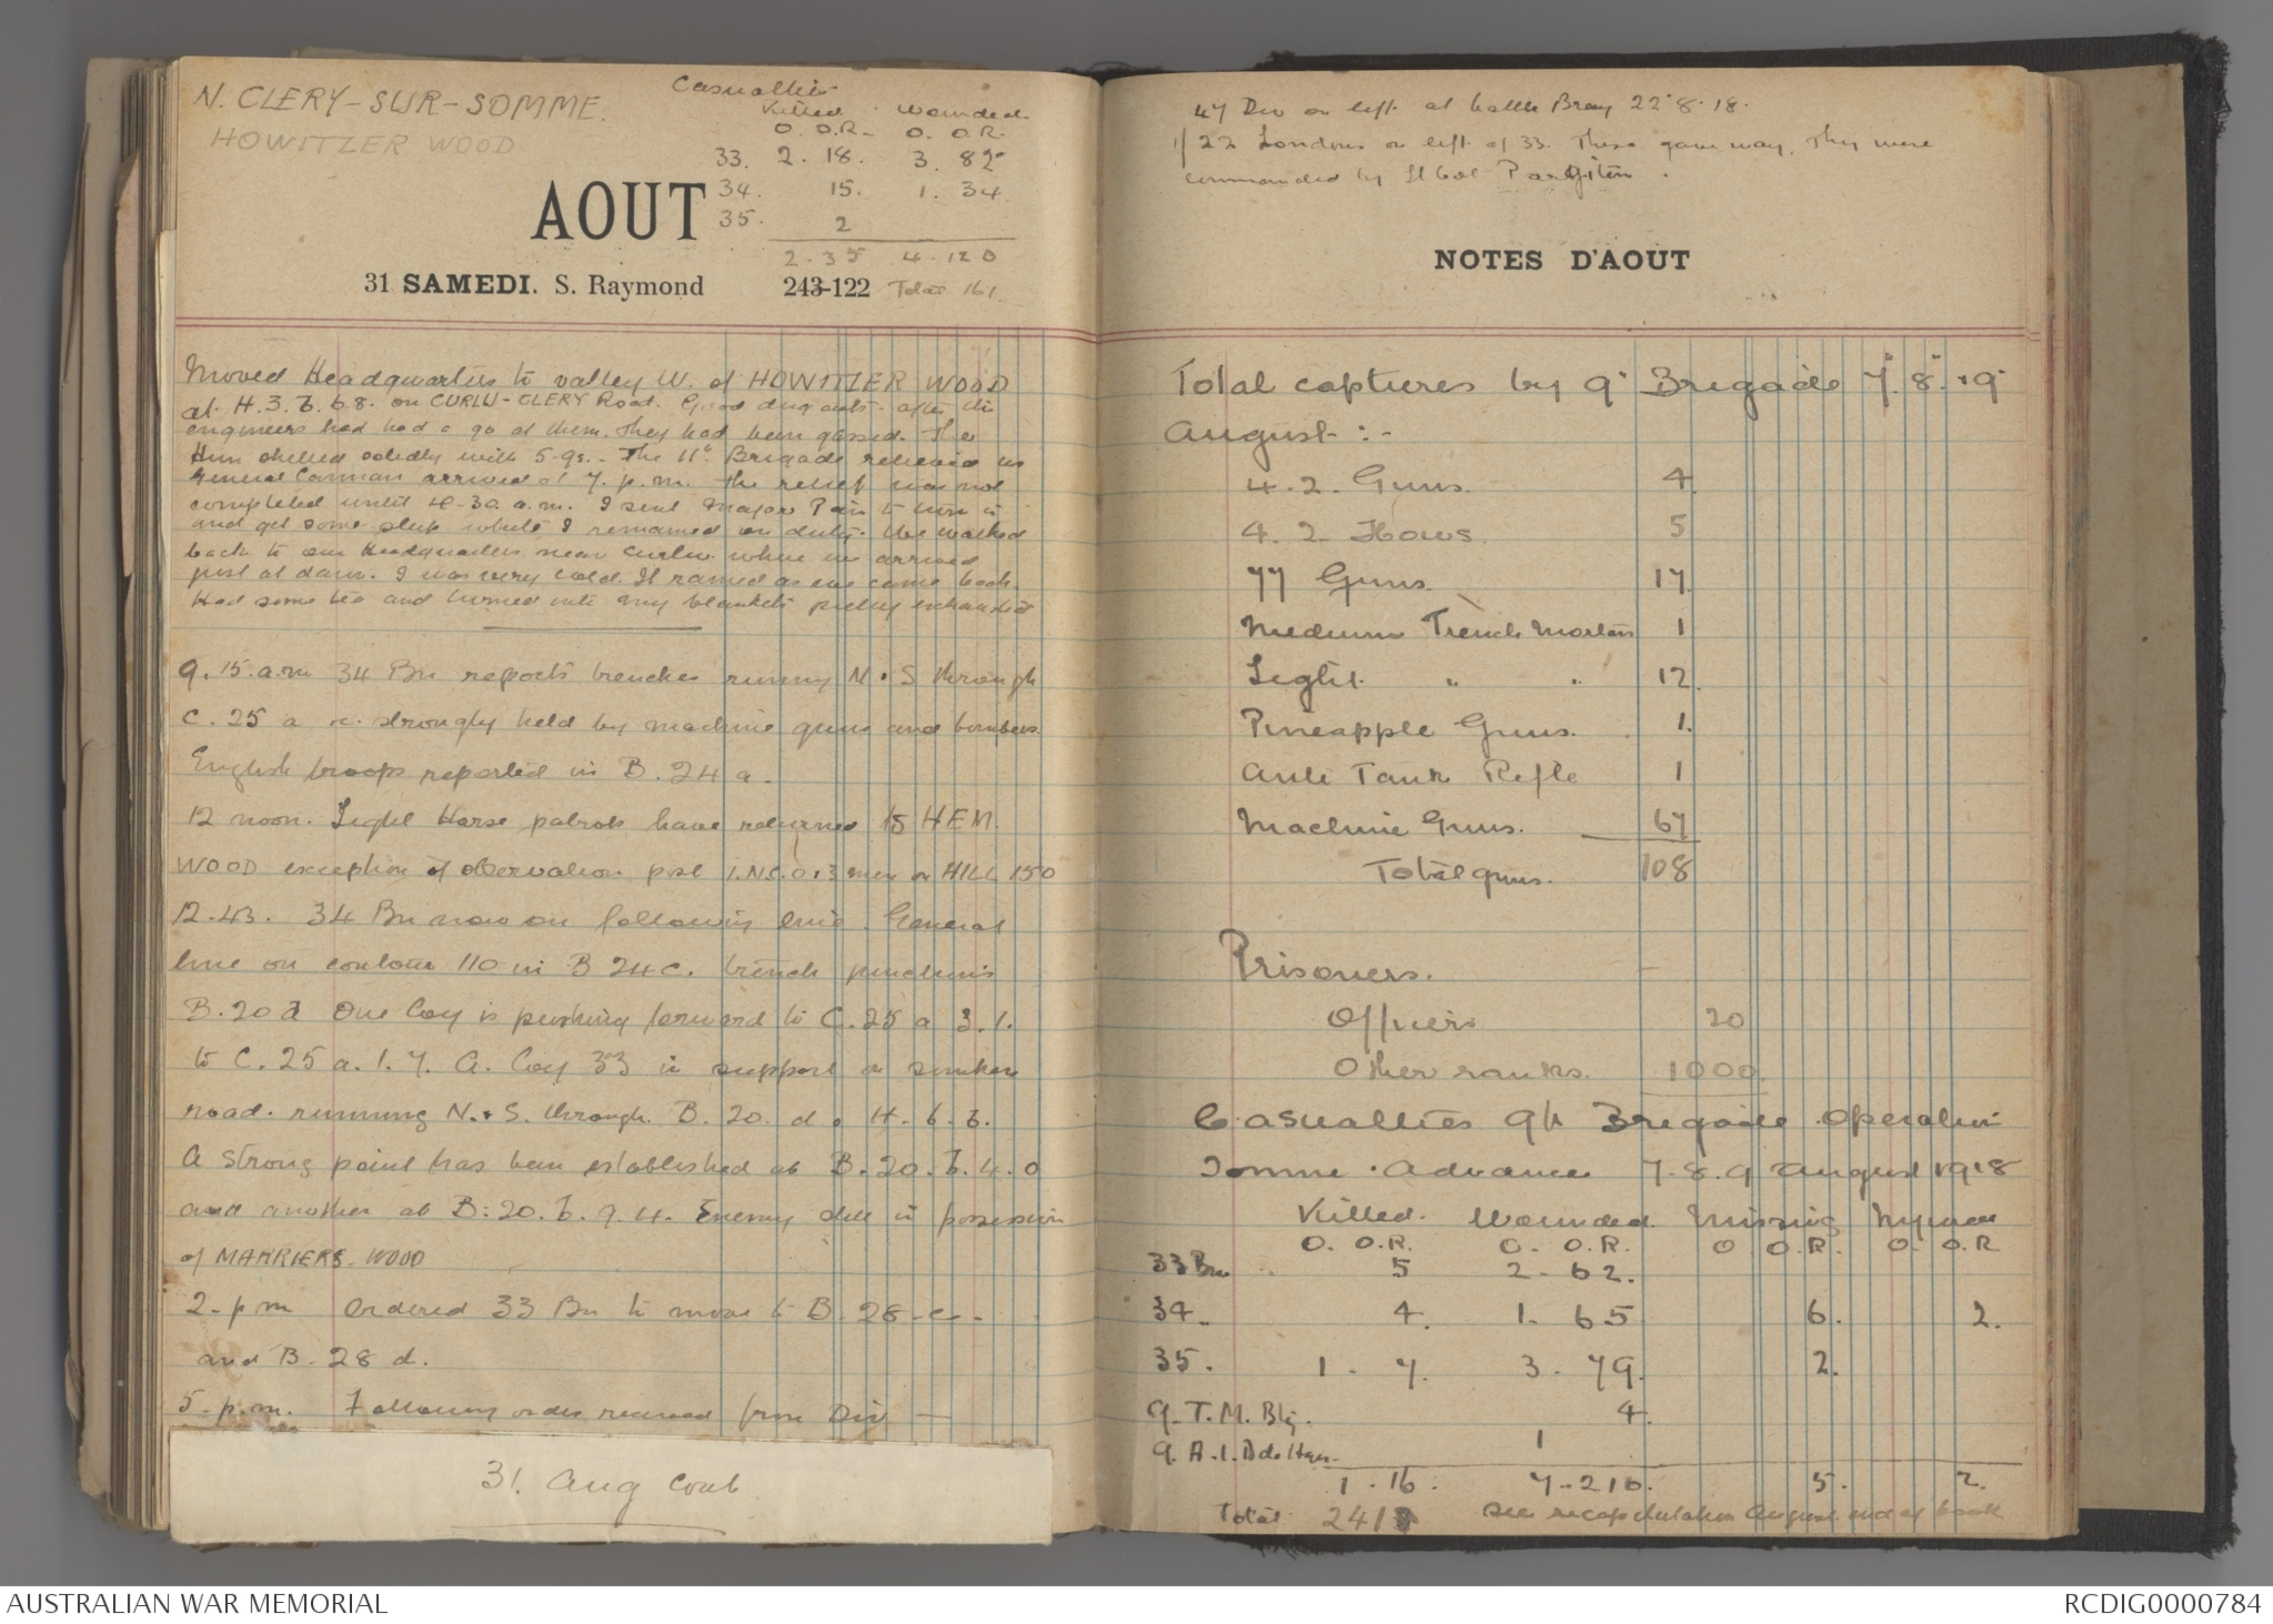 N. CLERY-SUR-SOMME.
HOWITZER WOOD
Casualties
Killed Wounded
O. O.R. O. O.R.
33. 2. 18. 3. 82
34. 15. 1. 34
35. 2
2. 35 4. 120
Total 161
AOUT
31 SAMEDI. S. Raymond 243-122
Moved Headquarters to valley W. of HOWITZER WOOD
at H.3.b.6.8. on CURLU-CLERY Road. Good dug outs - after the
engineers had had a go at them. They had been gassed. The
Hun shelled solidly with 5.9s. - The 11th Brigade relieved us
General Cannan arrived at 7. p.m. The relief was not
completed until 4-30 a.m. I sent Major Pain to turn in
and get some sleep whilst I remained on duty. We walked
back to our Headquarters near Curlu where we arrived
just at dawn. I was very cold. It rained as we came back.
Had some tea and turned into my blankets pretty exhausted
9.15 a.m 34 Bn reports trenches running N & S through
C. 25 a & c. strongly held by machine guns and bombers.
English troops reported in B. 24 a.
12 noon. Light Horse patrols have returned to HEM
WOOD exception of observation post 1 N.C.O & 3 men on HILL 150
12.43. 34 Bn now on following line. General
line on contour 110 in B 24 c. trench junctions
B. 20 d One Coy is pushing forward to C. 25 a 3.1.
to C. 25 a. 1. 7. A. Coy 33 in support in sunken
road. running N. & S. through. B. 20. d. 4. 6. 6.
A strong point has been established at B. 20. b. 4. 0
and another at B. 20. b. 9. 4. Enemy still in possession
of MARRIERS WOOD
2 - p.m Ordered 33 Bn to move to B. 28 - c -
and B. 28 d.
5 - p.m. Following order received from Div —
31. Aug Cont
47 Div on left at battle Bray 22.8.18.
1/22 Londons on left of 33. These gave way. They were
commanded by Lt Col Pargiter.
NOTES D'AOUT
Total captures by 9th Brigade 7. 8. & 9th
August :-
4.2. Guns. 4
4. 2 Hows. 5
77 Guns. 17
Medium Trench Mortars 1
Light " " 12
Pineapple Guns. 1.
Anti Tank Rifle 1
Machine Guns. 67
Total guns. 108
Prisoners.
Officers 20
Other ranks. 1000
Casualties 9th Brigade Operation
Somme Advance 7. 8. 9 August 1918
Killed. Wounded Missing Injured
O. O.R. O. O.R. O O.R. O. O.R
33 Bn 5 2 - 62.
34. 4. 1. 65 6. 2.
35. 1 - 7. 3 - 79. 2.
9. T.M. Bty. 4.
9. A.I. Bde Hqrs. 1
1 - 16. 7 - 210. 5. 2.
Total 241 See recapitulation August end of book
AUSTRALIAN WAR MEMORIAL
RCDIG0000784